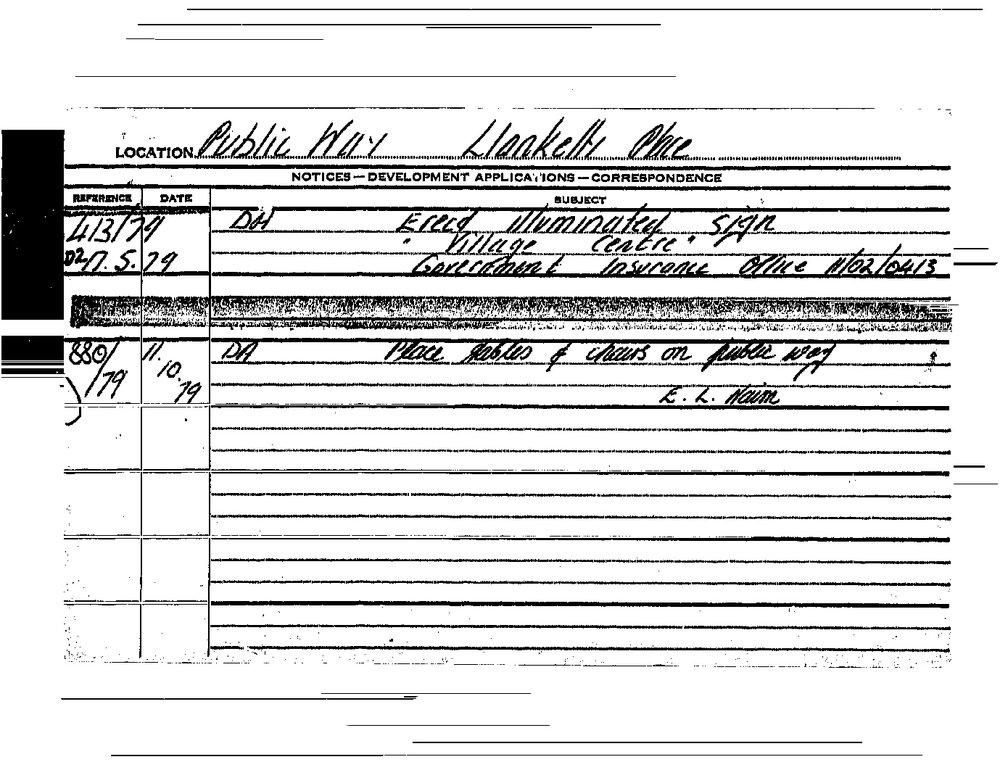 LOCATION Public Way Llankelly Place
NOTICES — DEVELOPMENT APPLICATIONS — CORRESPONDENCE
REFERENCE DATE SUBJECT
413/79 DA Erect illuminated sign
" Village Centre"
17.5.79 Government Insurance Office 11/02/0413
880/79 11.10.79 DA Place tables & chairs on public way
E. L. Naim